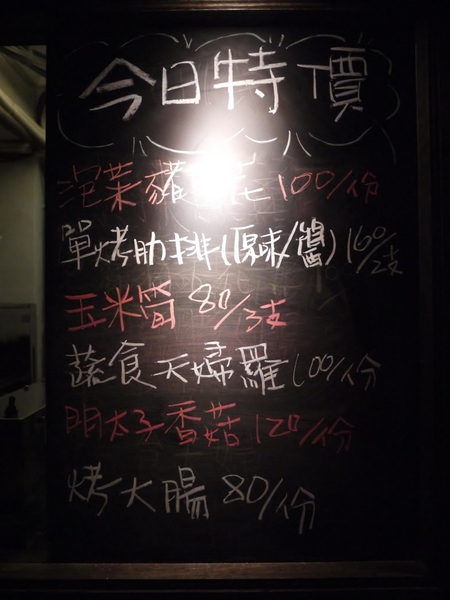 今日特價
泡菜豬 花 100/份
單烤肋排(原味/醬)160/2支
玉米筍 80/3支
蔬食天婦羅 100/份
明太子香菇 120/份
烤大腸 80/份